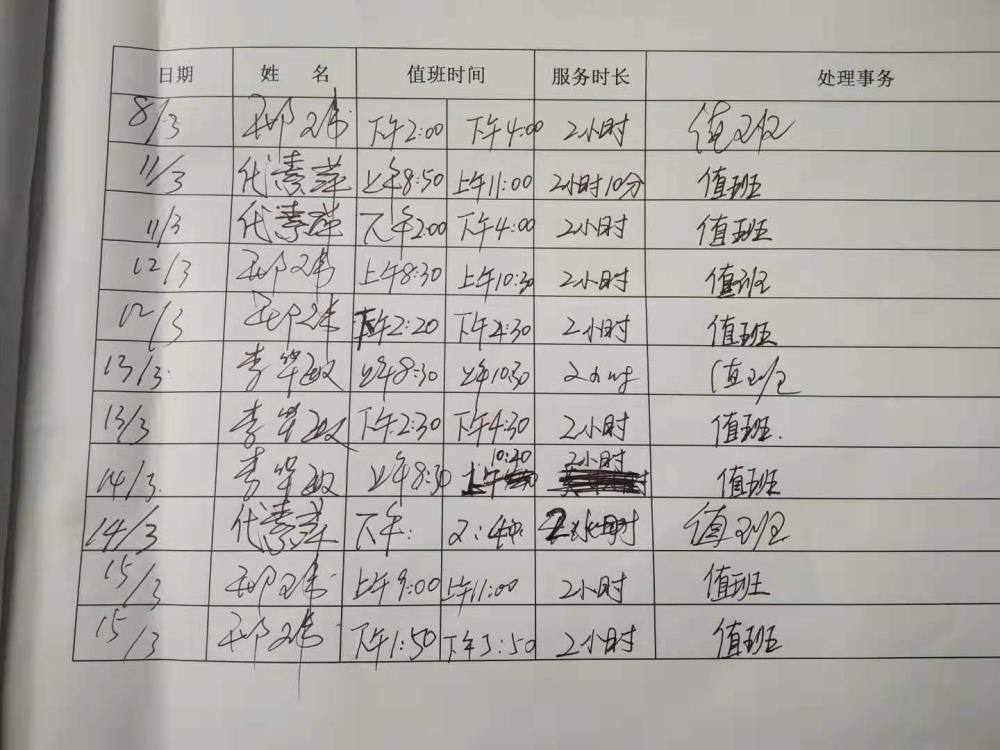 日期 姓 名 值班时间 服务时长 处理事务
8/3 下午2:00 下午4:00 2小时 值班
11/3 代素萍 上午8:50 上午11:00 2小时10分 值班
11/3 代素萍 下午2:00 下午4:00 2小时 值班
12/3 上午8:30 上午10:30 2小时 值班
12/3 下午2:20 下午4:30 2小时 值班
13/3. 李 敏 上午8:30 上午10:30 2小时 值班
13/3 李 敏 下午2:30 下午4:30 2小时 值班.
14/3. 李 敏 上午8:30 上午10:40 2小时 值班
14/3 代素萍 下午: 2小时 值班
15/3 上午9:00 上午11:00 2小时 值班
15/3 下午1:50 下午3:50 2小时 值班